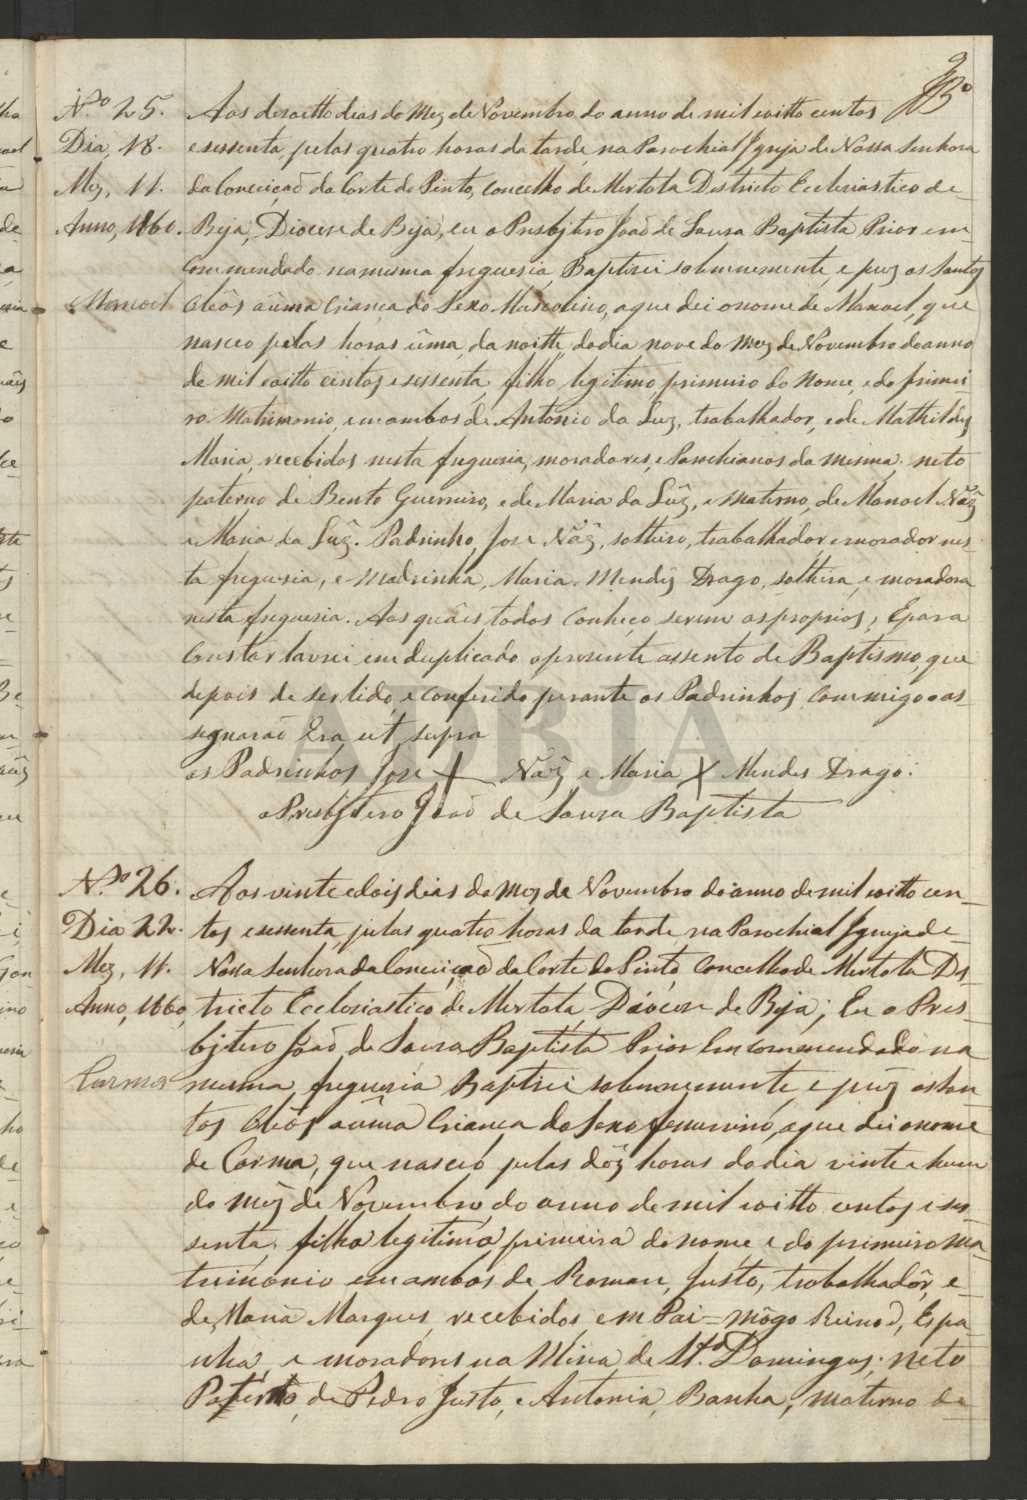 9
Bº
N.º 25.
Dia, 18.
Mez, 11.
Anno, 1860.
Manoel
Aos desoitto dias do Mez de Novembro do anno de mil oitto centos
e sessenta, pelas quatro horas da tarde, na Parochial Igreja de Nossa Senhora
da Conceição da Corte do Pinto, Concelho de Mertola Districto Ecclesiastico de
Beja, Diocese de Beja, eu o Presbjtero João de Sousa Baptista Prior em
Commendado na mesma freguesia, Baptizei solemnemente, e puz os Santos
Oleôs a ûma Criança do Sexo Mascolino, a que dei o nome de Manoel, que
nasceo pelas horas ûma, da noitte, do dia nove do Mez de Novembro do anno
de mil oitto centos e sessenta, filho legitimo, primeiro do Nome, e do primei
ro Matrimonio, em ambos de Antonio da Luz, trabalhador, e de Mathildes
Maria, recebidos nesta freguesia, moradores, e Parochianos da mesma, neto
paterno de Bento Guerreiro, e de Maria da Lûz, e materno, de Manoel Nãz
e Maria da Lûz. Padrinho, Jose Nãz, solteiro, trabalhador, e morador nes-
ta freguesia, e Madrinha, Maria Mendes Drago, solteira, e moradora
nesta freguesia. Aos quâes todos Conheço serem os proprios; E para
Constar lavrei em duplicado o presente assento de Baptismo, que
depois de ser lido, e conferido perante os Padrinhos Commigo o as-
signarão Era ut supra
os Padrinhos Jose + Nãz e Maria X Mendes Drago.
o Presbjtero João de Sousa Baptista
N.º 26.
Dia 22.
Mez, 11.
Anno, 1860,
Carma
Aos vinte e dois dias do Mez de Novembro do anno de mil oitto cen-
tos e sessenta, pelas quatro horas da tarde na Parochial Igreja de
Nossa Senhora da Conceição da Corte do Pinto, Concelho de Mertola Dis
tricto Ecclesiastico de Mertola, Diocese de Beja; Eu o Pres-
bjtero João de Sousa Baptista Prior Emcommendado na
mesma freguesia Baptizei solemnemente, e puz os San
tos Oleôs a ûma Criança do Sexo femenino, a que dei o nome
de Carma, que nasceo pelas dôz horas do dia vinte e hum
do mêz de Novembro do anno de mil oitto centos e ses-
senta, filha legitima, primeira do nome e do primeiro Ma-
trimonio em ambos de Roman, Justo, trabalhadôr, e
de Maria Marques, recebidos, em Pai=môgo Reino d, Espa-
nha, e moradores na Mina de St.º Domingos, neto
Paterno, de Pedro Justo, e Antonia, Banha, materno de